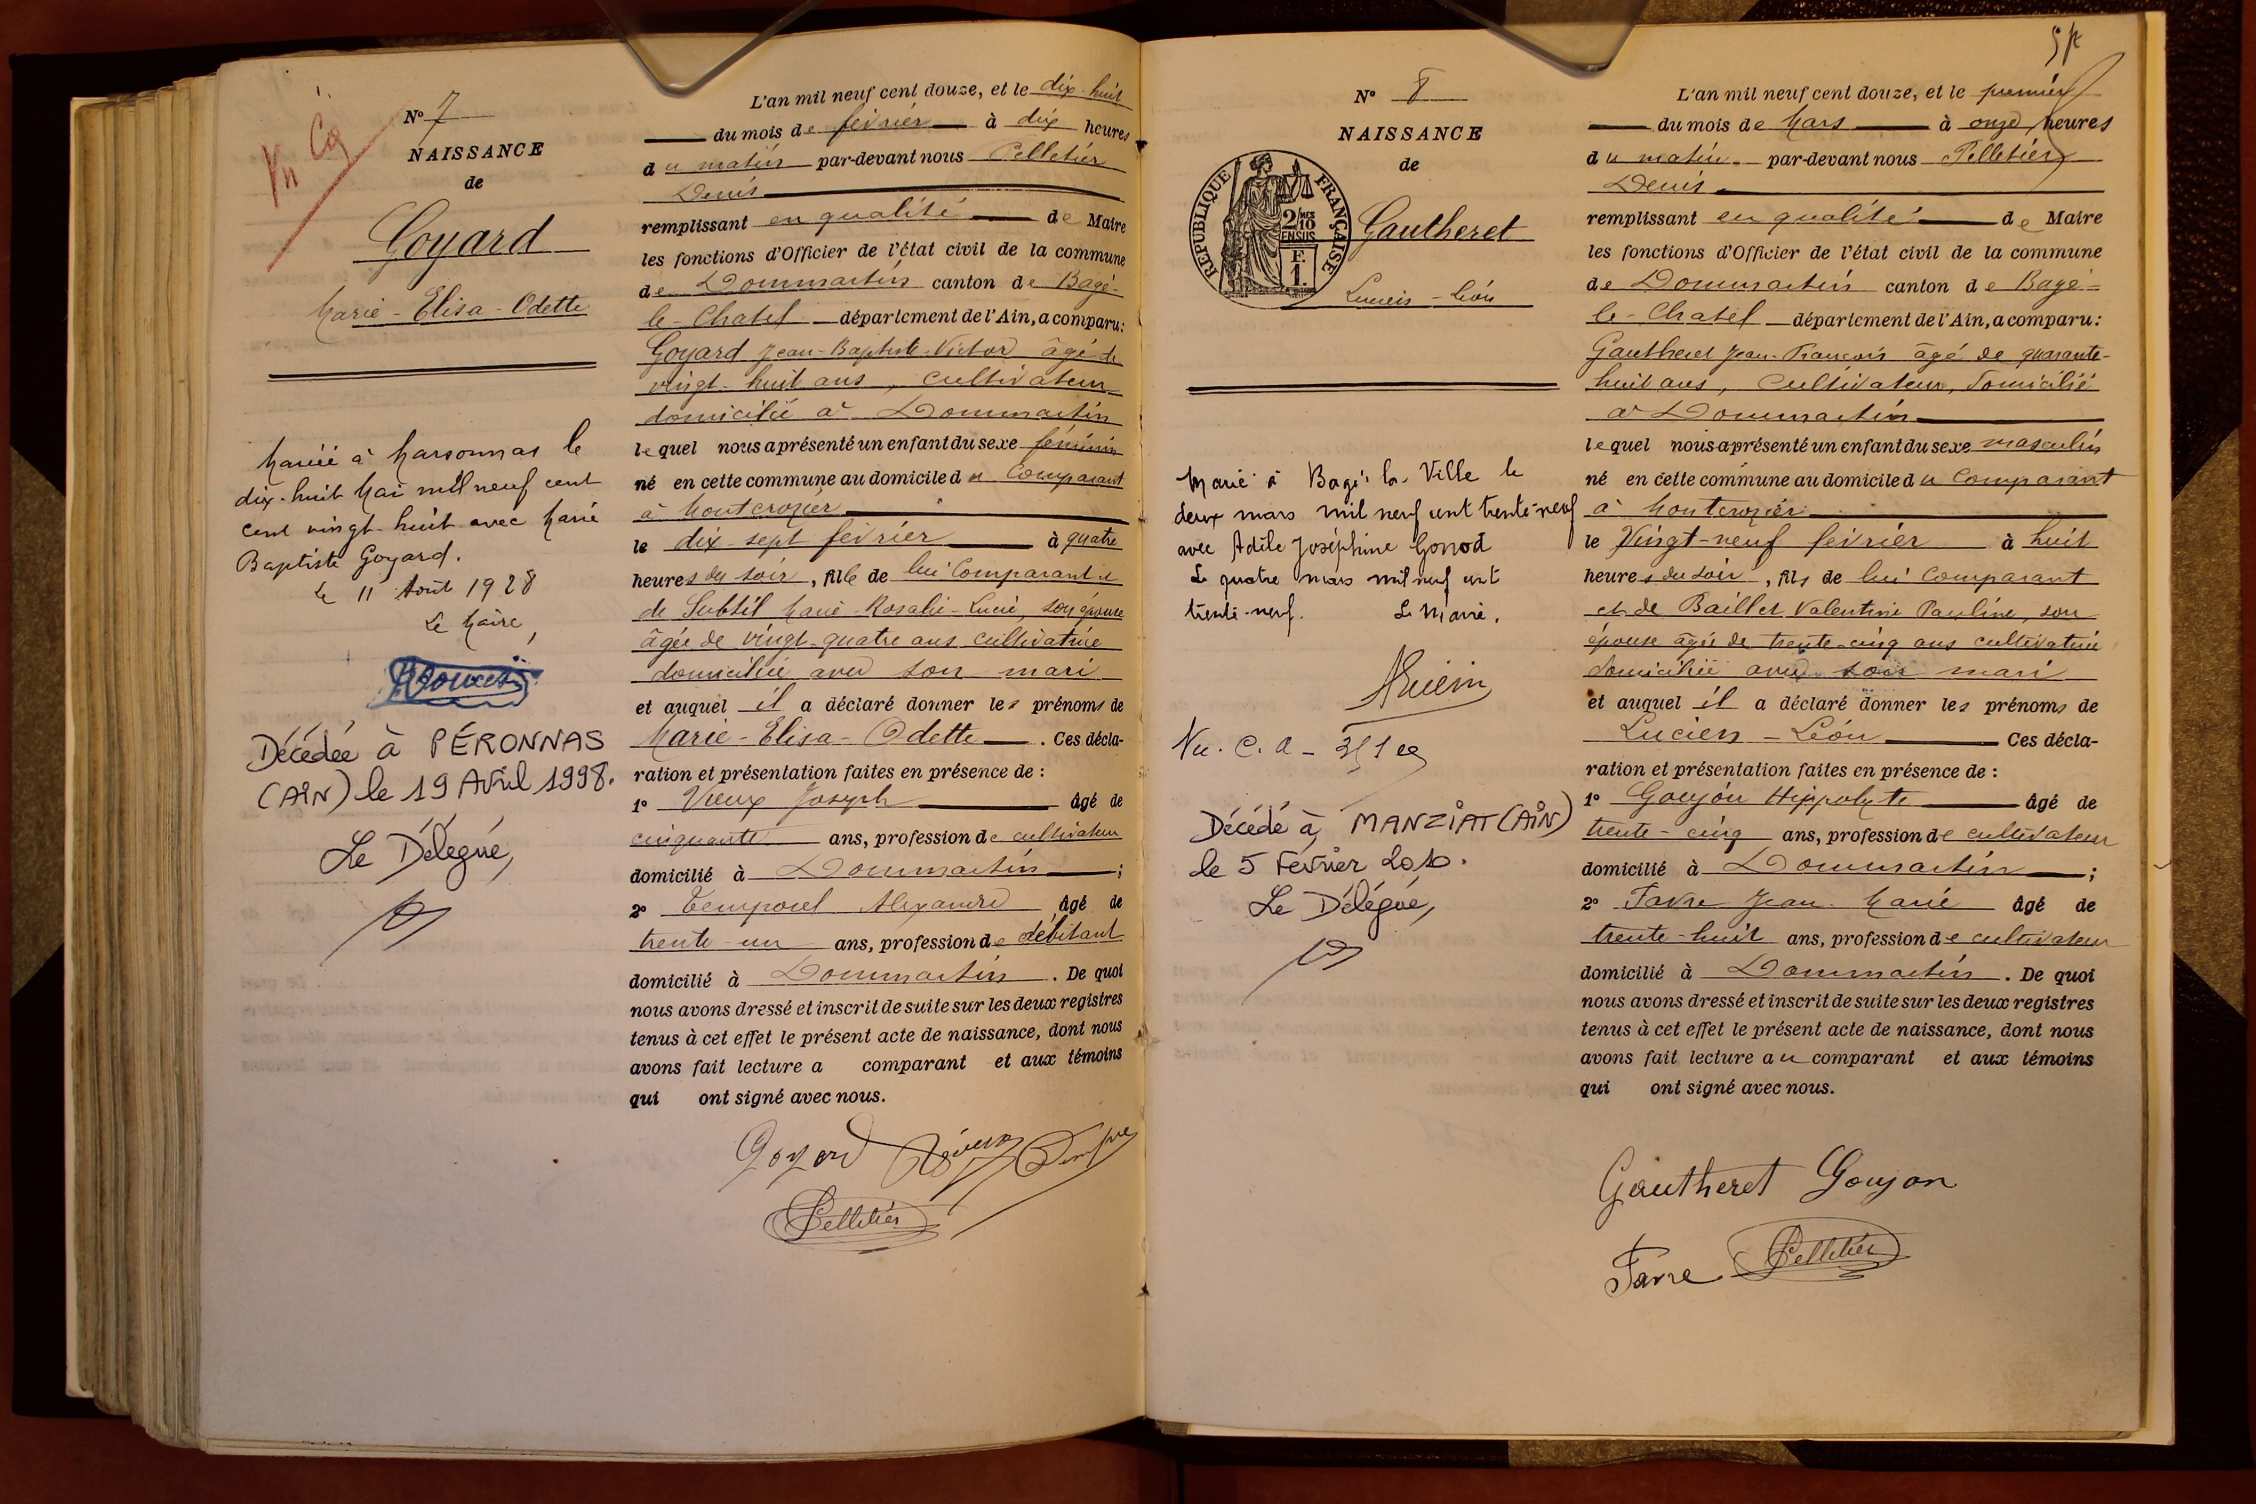 N° 7
NAISSANCE
de
Goyard
Marie - Elisa - Odette
Mariée à Marsonnas le
dix-huit Mai mil neuf cent
cent vingt-huit avec Marie
Baptiste Goyard.
Le 11 Août 1928
Le Maire,
Décédée à PÉRONNAS
(AIN) le 19 Avril 1998.
Le Délégué,
L'an mil neuf cent douze, et le dix-huit
du mois de février à dix heures
du matin par-devant nous Pelletier
Denis
remplissant en qualité de Maire
les fonctions d'Officier de l'état civil de la commune
de Dommartin canton de Bagé-
le-Chatel département de l'Ain, a comparu:
Goyard Jean-Baptiste-Victor âgé de
vingt-huit ans, cultivateur
domicilié à Dommartin
lequel nous a présenté un enfant du sexe féminin
né en cette commune au domicile du Comparant
à Montcrozier
le dix-sept février à quatre
heures du soir, fille de lui Comparant et
de Subtil Marie-Rosalie-Lucie, son épouse
âgée de vingt-quatre ans cultivatrice
domiciliée avec son mari
et auquel il a déclaré donner les prénoms de
Marie - Elisa - Odette . Ces décla-
ration et présentation faites en présence de :
1° Vieux Joseph âgé de
cinquante ans, profession de cultivateur
domicilié à Dommartin ;
2° Temporel Alexandre âgé de
trente-un ans, profession de débitant
domicilié à Dommartin . De quoi
nous avons dressé et inscrit de suite sur les deux registres
tenus à cet effet le présent acte de naissance, dont nous
avons fait lecture a comparant et aux témoins
qui ont signé avec nous.
Goyard
Pelletier
N° 8
NAISSANCE
de
RÉPUBLIQUE FRANÇAISE
2/10 EN SUS
F. 1.
Gautheret
Lucien - Léon
Marié à Bagé-la-Ville le
deux mars mil neuf cent trente-neuf
avec Adèle Joséphine Gonod
Le quatre mars mil neuf cent
trente-neuf. Le Maire,
Décédé à MANZIAT (AIN)
le 5 Février 2010.
Le Délégué,
L'an mil neuf cent douze, et le premier
du mois de Mars à onze heures
du matin par-devant nous Pelletier
Denis
remplissant en qualité de Maire
les fonctions d'Officier de l'état civil de la commune
de Dommartin canton de Bagé-
le-Chatel département de l'Ain, a comparu:
Gautheret Jean-François âgé de quarante-
huit ans, Cultivateur, domicilié
à Dommartin
lequel nous a présenté un enfant du sexe masculin
né en cette commune au domicile du Comparant
à Montcrozier
le Vingt-neuf février à huit
heures du soir, fils de lui Comparant
et de Baillet Valentine Pauline, son
épouse âgée de trente-cinq ans cultivatrice
domiciliée avec son mari
et auquel il a déclaré donner les prénoms de
Lucien - Léon Ces décla-
ration et présentation faites en présence de :
1° Goujon Hippolyte âgé de
trente-cinq ans, profession de cultivateur
domicilié à Dommartin ;
2° Favre Jean-Marie âgé de
trente-huit ans, profession de cultivateur
domicilié à Dommartin . De quoi
nous avons dressé et inscrit de suite sur les deux registres
tenus à cet effet le présent acte de naissance, dont nous
avons fait lecture au comparant et aux témoins
qui ont signé avec nous.
Gautheret Goujon
Favre Pelletier